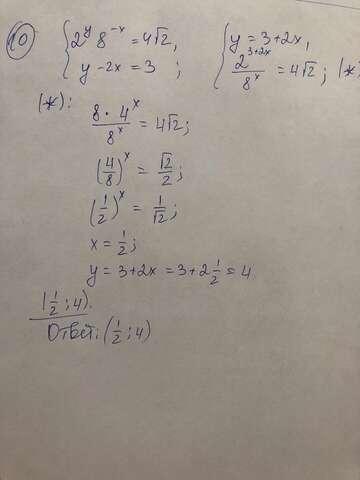 10) { 2^y 8^{-x} = 4√2, { y = 3+2x,
y - 2x = 3 ; 2^{3+2x}/8^x = 4√2; (*)
(*): 8 · 4^x / 8^x = 4√2;
(4/8)^x = √2/2;
(1/2)^x = 1/√2;
x = 1/2;
y = 3+2x = 3+2 1/2 = 4
(1/2; 4).
Ответ: (1/2; 4)